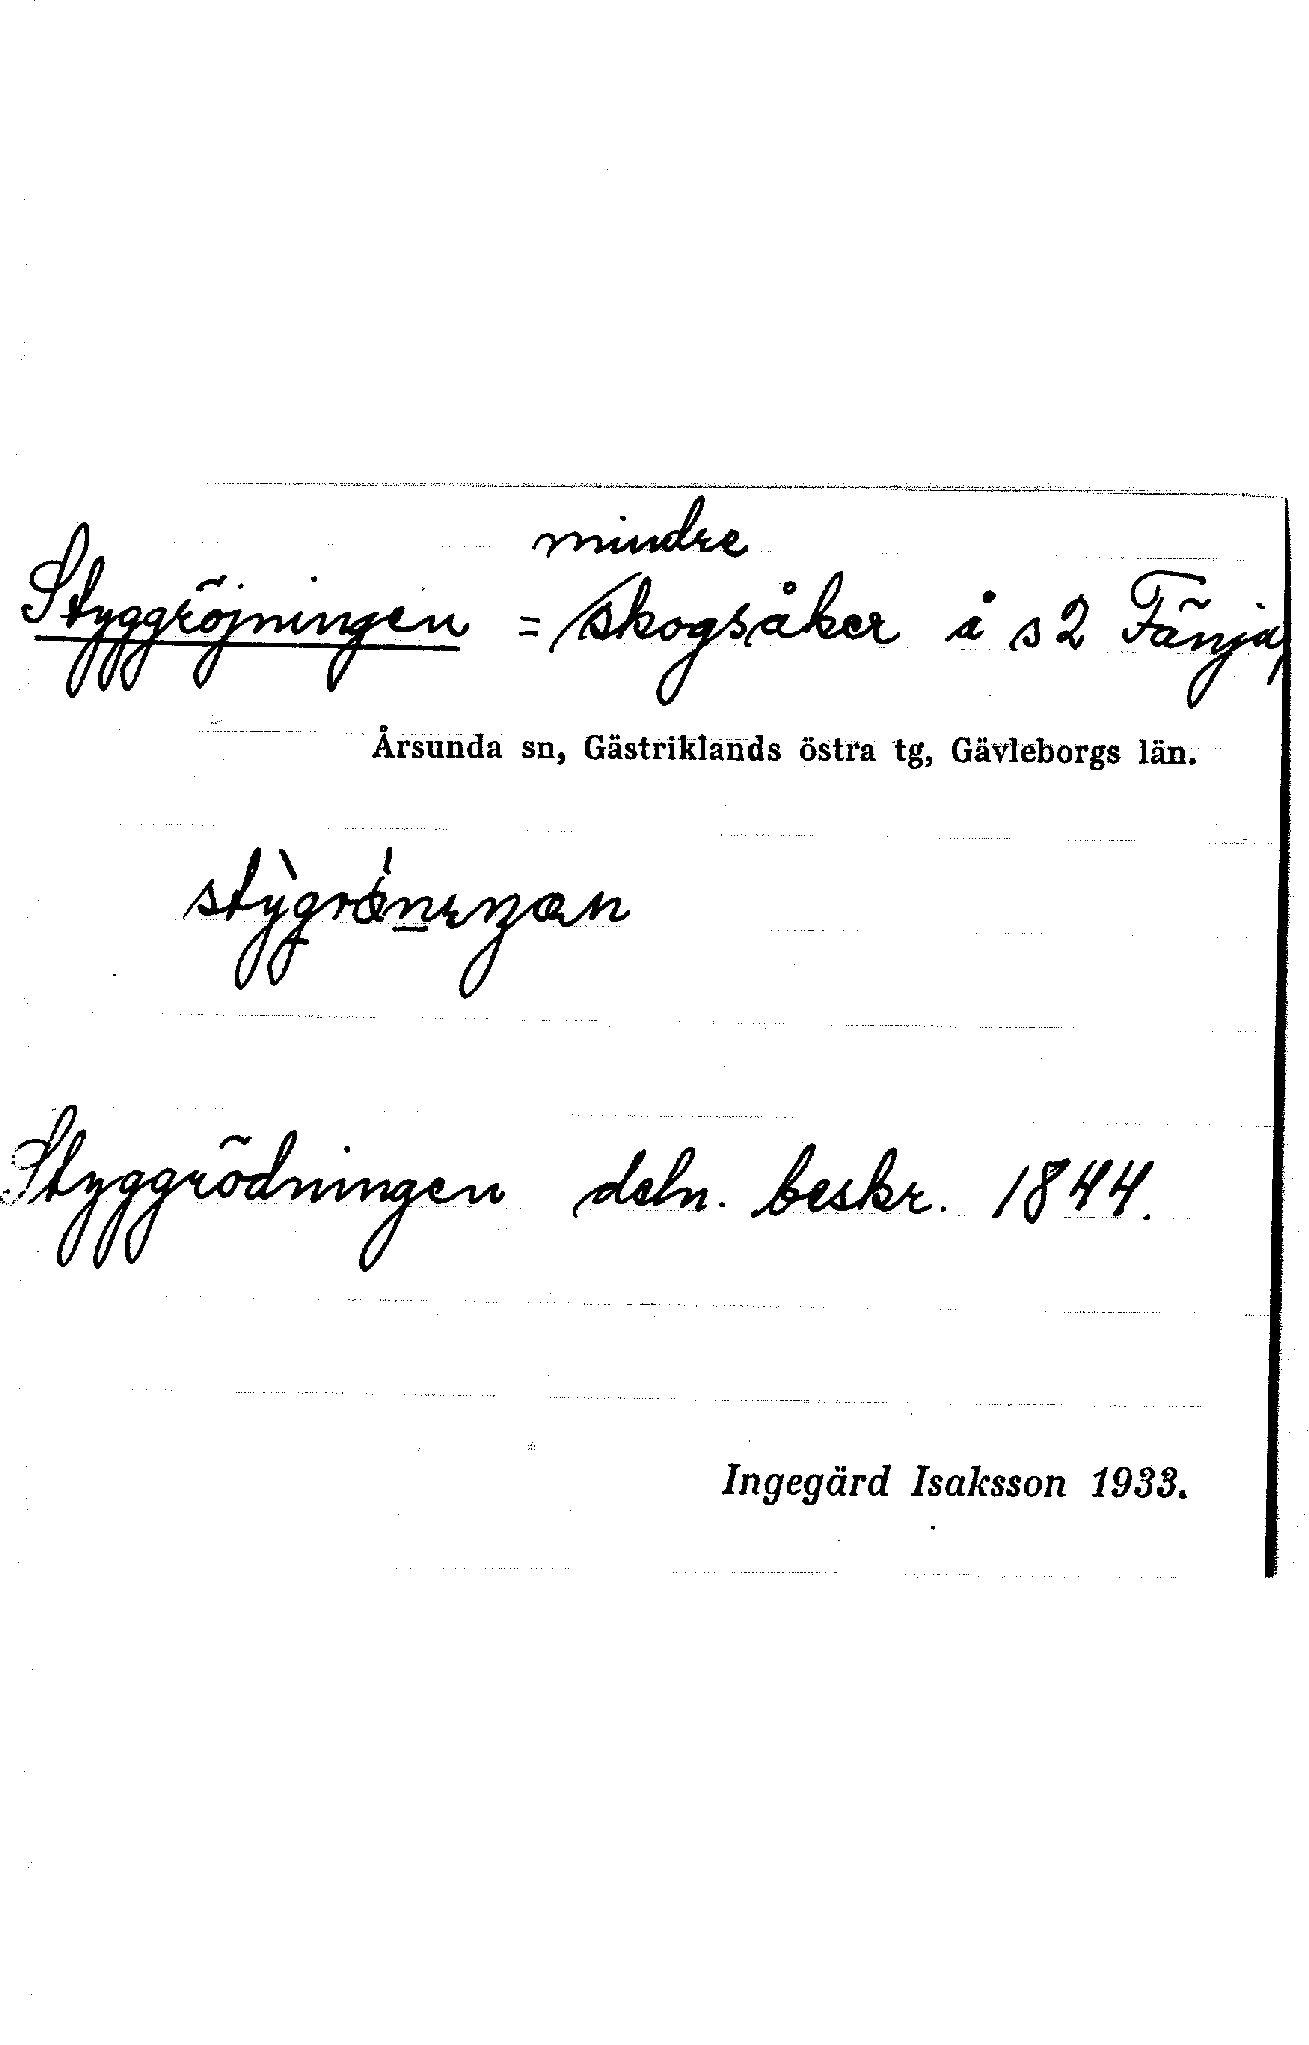 Styggröjningen = mindre skogsåker å s 2 Fänja,
Årsunda sn, Gästriklands östra tg, Gävleborgs län.
Styggrödningen deln. beskr. 1844.
Ingegärd Isaksson 1933.